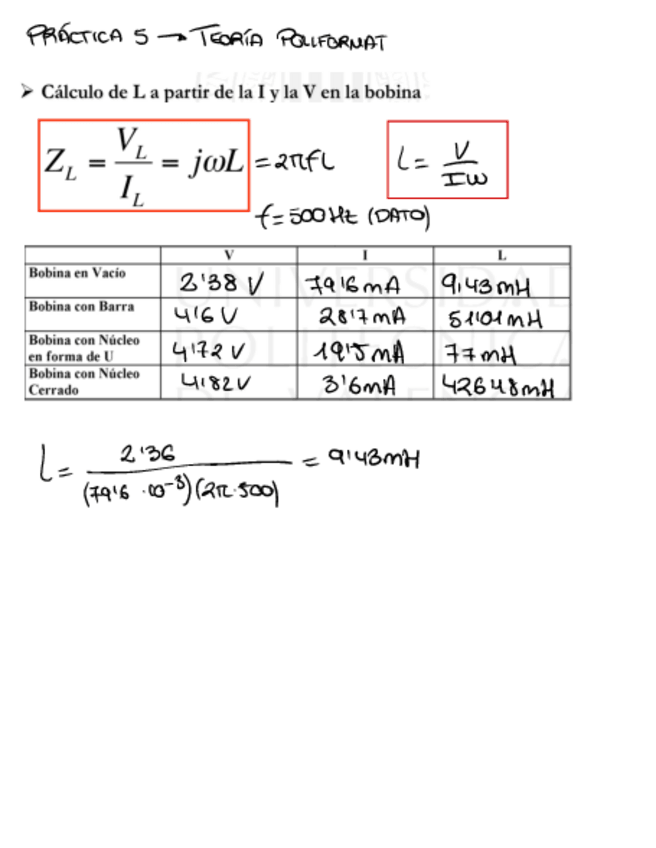 PRÁCTICA 5 → TEORÍA POLIFORMAT
➢ Cálculo de L a partir de la I y la V en la bobina
Z_L = V_L / I_L = jωL = 2πfL L = V / Iω
f = 500 Hz (DATO)
V I L
Bobina en Vacío 2'38 V 79'6 mA 9,43 mH
Bobina con Barra 4'6 V 28'7 mA 51'01 mH
Bobina con Núcleo en forma de U 4'72 V 19'5 mA 77 mH
Bobina con Núcleo Cerrado 4'82 V 3'6 mA 426'48 mH
L = 2'36 / (79'6 · 10⁻³)(2π·500) = 9'43 mH